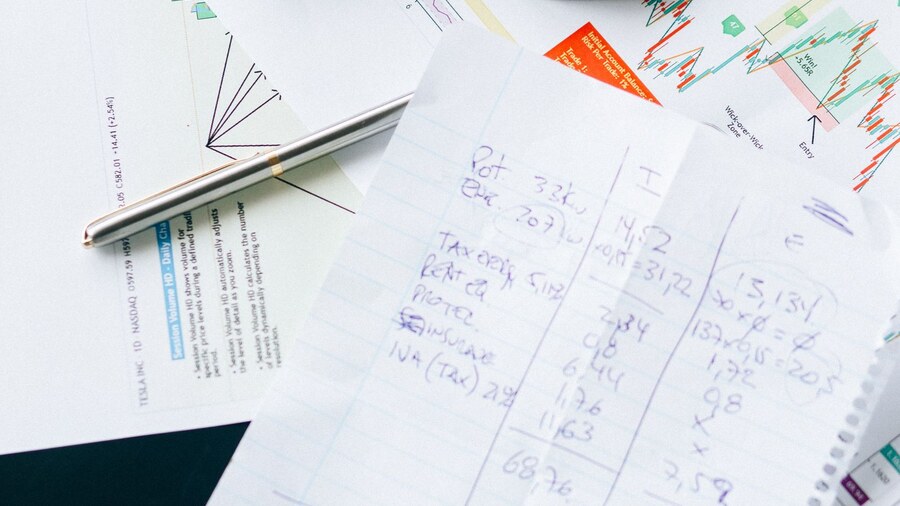 TESLA INC 1D NASDAQ O597.59 H597
2.05 C582.01 +14.41 (+2.54%)
Session Volume HD - Daily Cha
• Session Volume HD shows volume for
specific price levels during a defined tradi
period.
• Session Volume HD automatically adjusts
the level of detail as you zoom.
• Session Volume HD calculates the number
of levels dynamically depending on
resolution.
Initial Account Balance:
Risk Per Trade: 1%
Trade 1:
Trade
47
Win!
-5.65R
Wick-over-Wick
Zone
Entry
I
E
Pot. 33kw
14,52
13,134
207
= 31,22
x0 x Ø = Ø
5,113
2,34
137 x 0,15 = 20,5
0,8
1,72
6,44
0,8
1,76
x
IVA (TAX) 21%
11,63
x
68,76
7,59